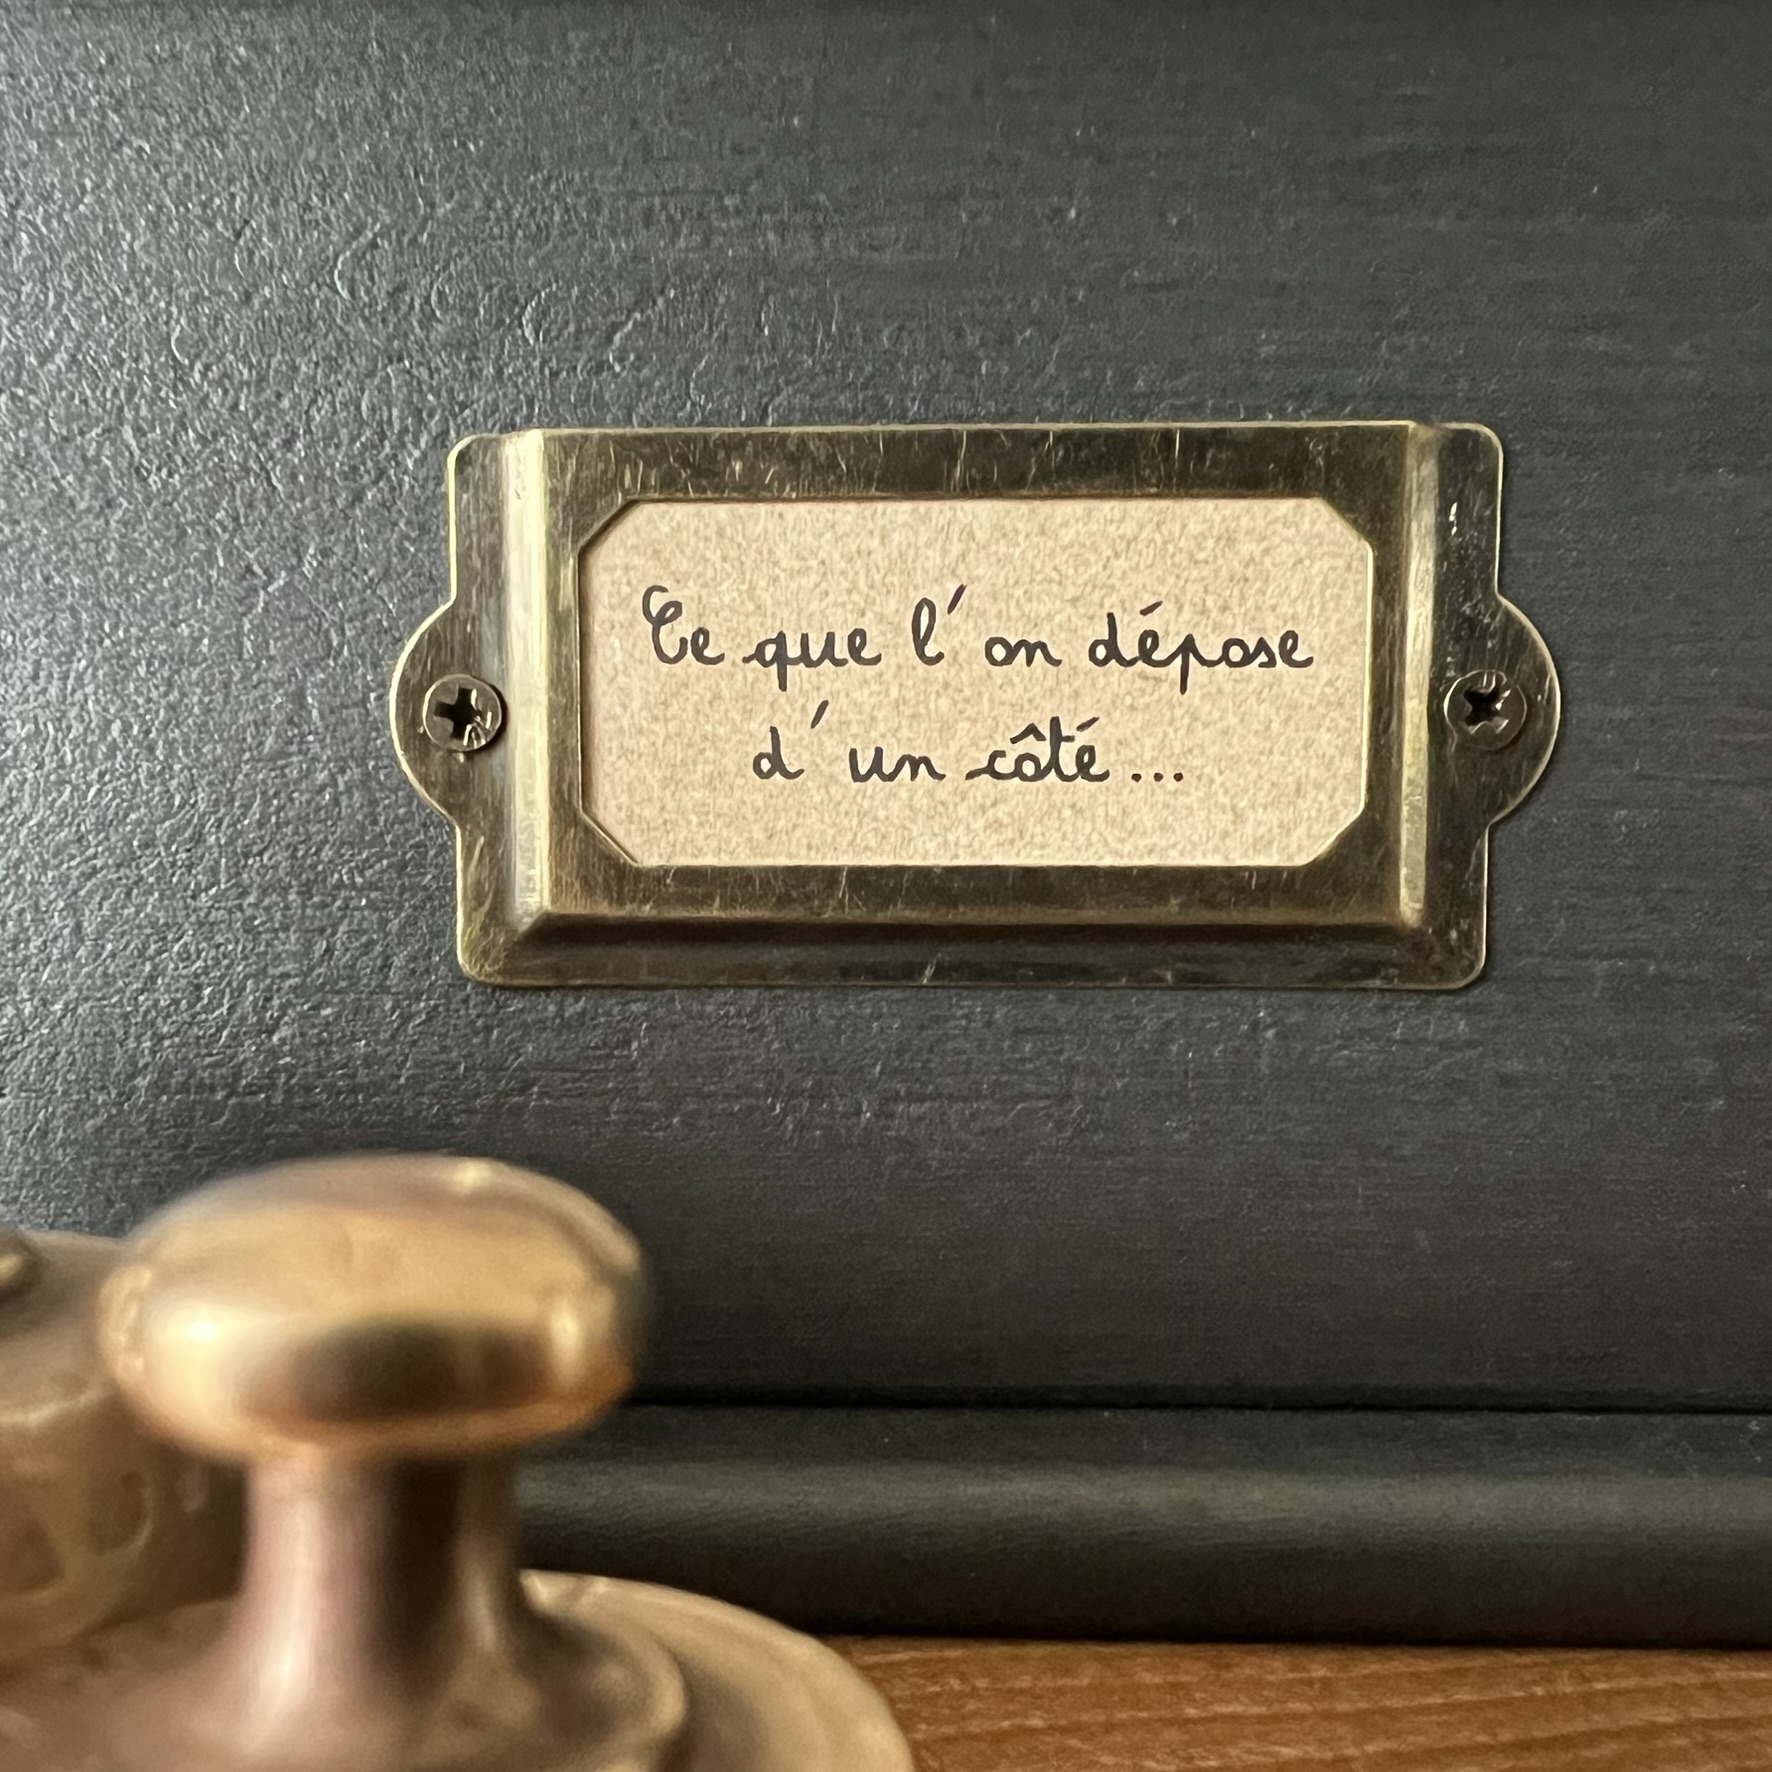 Ce que l'on dépose
d'un côté...